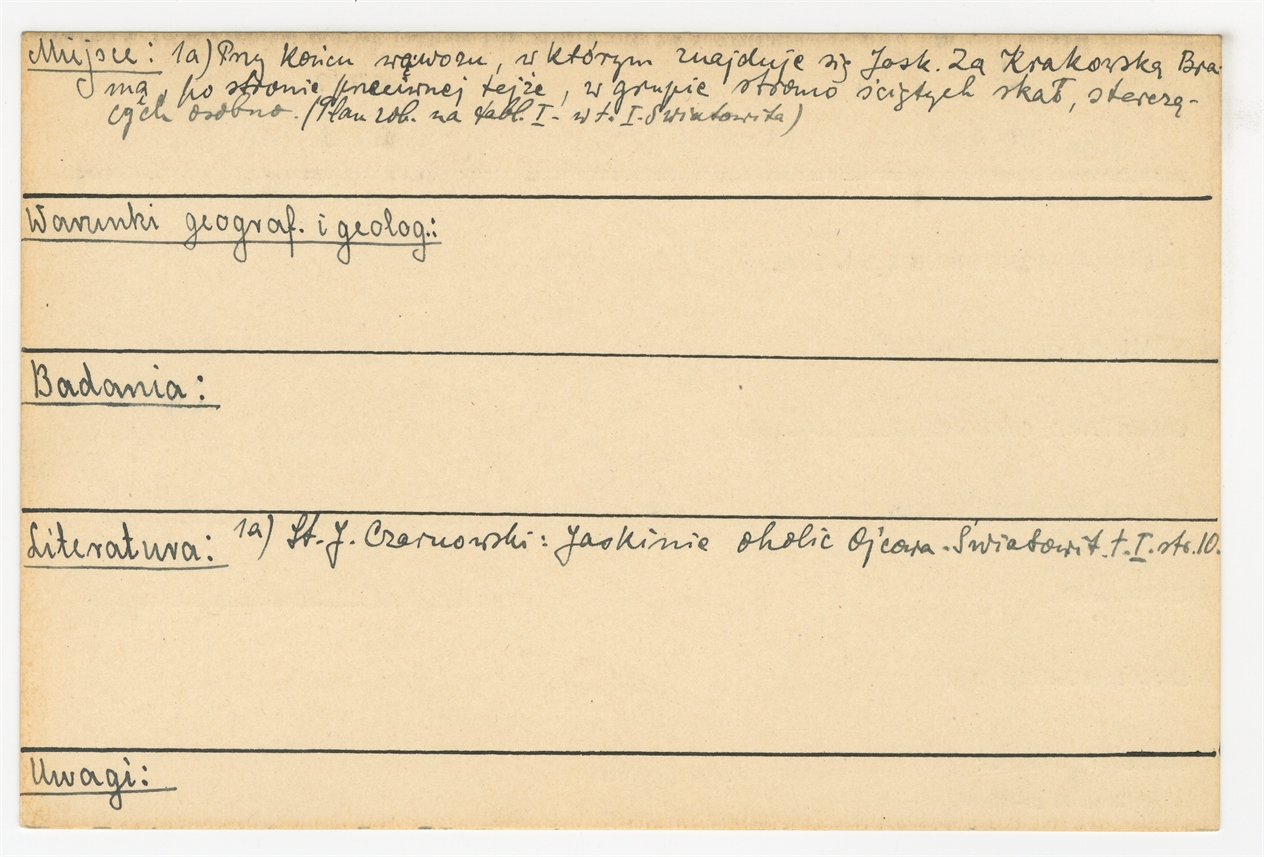 Miejsce: 1a) Przy końcu wąwozu, w którym znajduje się Jask. Za Krakowską Bra-
mą, po stronie przeciwnej tejże, w grupie stromo ściętych skał, sterczą-
cych osobno. (Plan zob. na tabl. I. w t. I. Światowita)
Warunki geograf. i geolog.:
Badania:
Literatura: 1a) St. J. Czarnowski: Jaskinie okolic Ojcowa. Światowit. t. I. str. 10.
Uwagi: